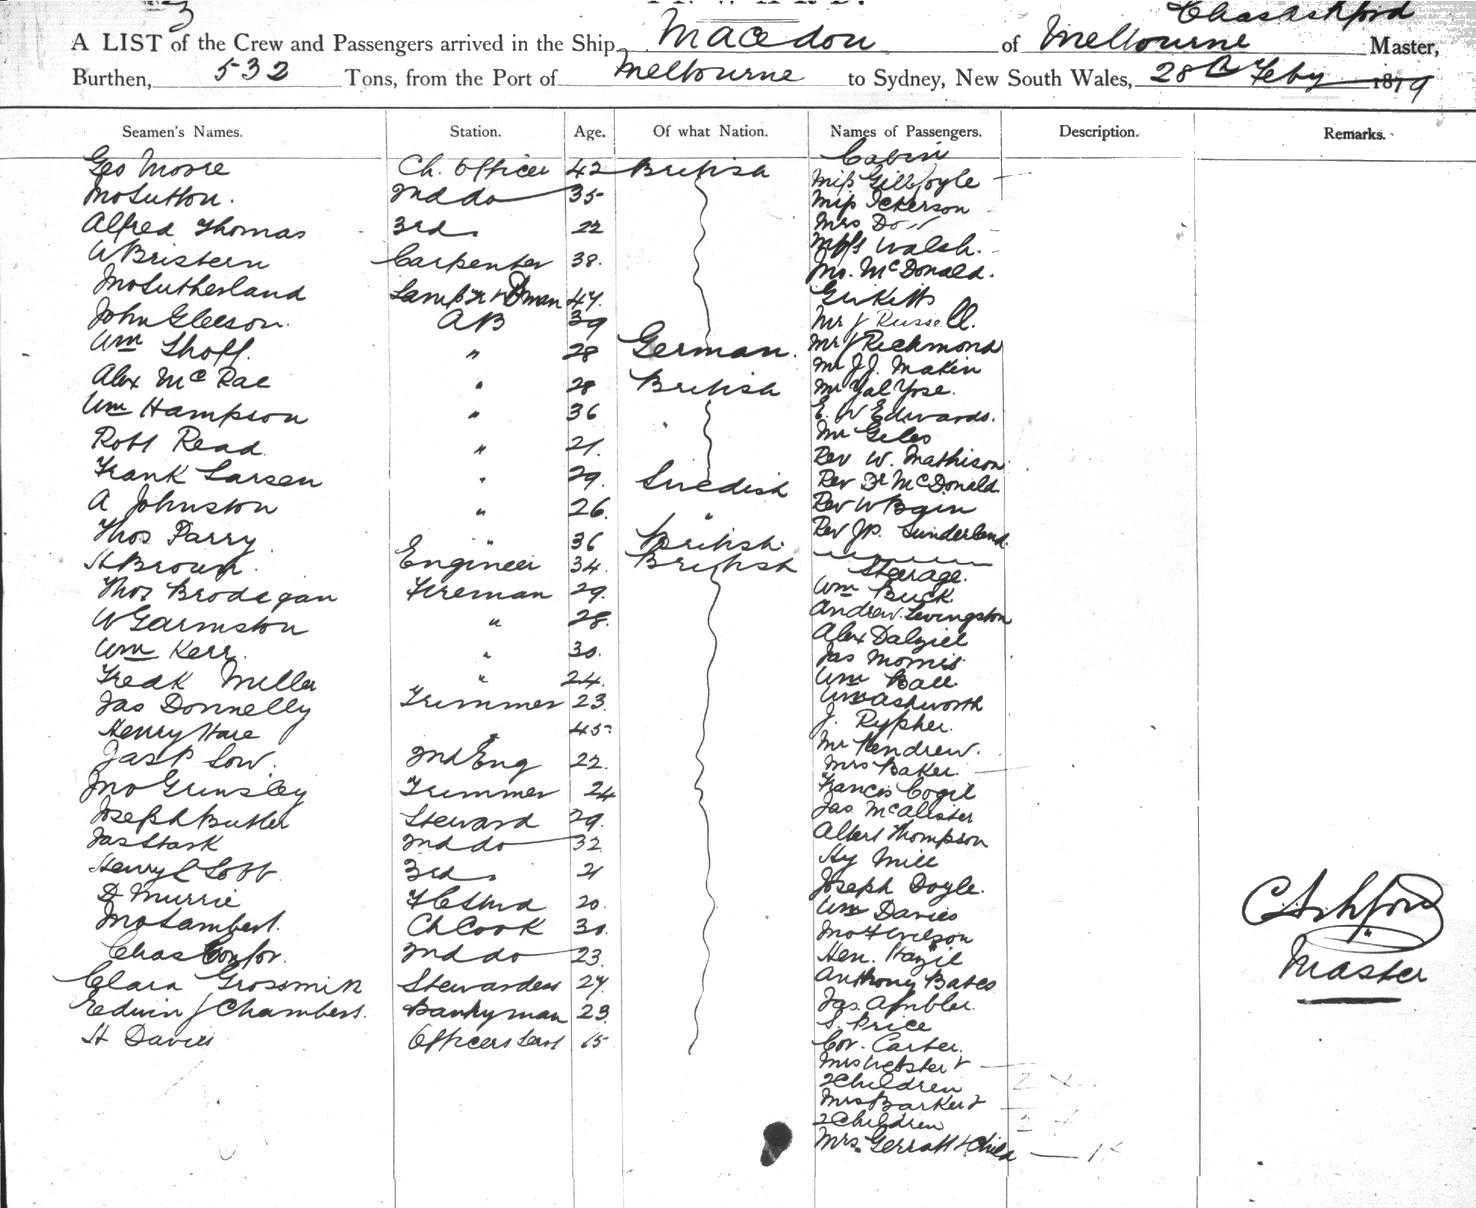 3
INWARD.
Chas Ashford
A LIST of the Crew and Passengers arrived in the Ship Macedon of Melbourne Master,
Burthen, 532 Tons, from the Port of Melbourne to Sydney, New South Wales, 28th Feby 1879
Seamen's Names. Station. Age. Of what Nation. Names of Passengers. Description. Remarks.
Geo Moore Ch. Officer 42 British
Jno Sutton. 2nd do 35
Alfred Thomas 3rd " 22
W Bristern Carpenter 38.
Jno Sutherland Lamp Tr & 47.
John Gleeson. AB 39
Wm Thoff. " 28 German.
Alex McRae " 28 British
Wm Hampson " 36
Robt Read " 21.
Frank Larsen " 29. Swedish
A Johnston " 26. "
Thos Parry " 36 British.
H Brown. Engineer 34. British
Thos Brodegan Fireman 29.
W Garmston " 28.
Wm Kerr. " 30.
Fredk Miller " 24.
Jas Donnelly Trimmer 23.
Henry Hare " 45
Jas P Low. 2nd Eng 22.
Jno Grinsley Trimmer 24
Joseph Butler Steward 29.
Jas Stark 2nd do 32
Henry C Lobb. 3rd " 21
D Murrie F C Stwd 20.
Jno Lambert. Ch Cook 30.
Chas 2nd do 23.
Clara Stewardess 27.
Edwin J Chambers. Pantryman 23.
H Davies Officers Servt 15
Cabin
Miss Gillfoyle
Miss Ickerson
Mrs Do "
Walsh.
Jno. McDonald.
Mr J Russell.
Mr J Richmond
Mr J.J. Makin
Mr
E. W Edwards.
Mr Geles
Rev W. Mathison
Rev Dr McDonald
Rev W
Rev J.P. Sunderland
Steerage.
Wm Buck
Andrew Levingston
Alex Dalziel
Jas Morris
Wm Ball
Wm Ashworth
J. Rypher.
Mr Kendrew.
Mrs Baker.
Francis Cogil
Jas McAlister
Albert Thompson
Hy Mill
Joseph Doyle.
Wm Davies
Jno F Wilson
Hen. Hazil
Anthony Bates
Jas. Ambler.
S. Price
Cor. Carter.
Mrs Webster &
2 Children
Mrs Barker &
2 Children
Mrs. Gerratt & Child
C Ashford
Master